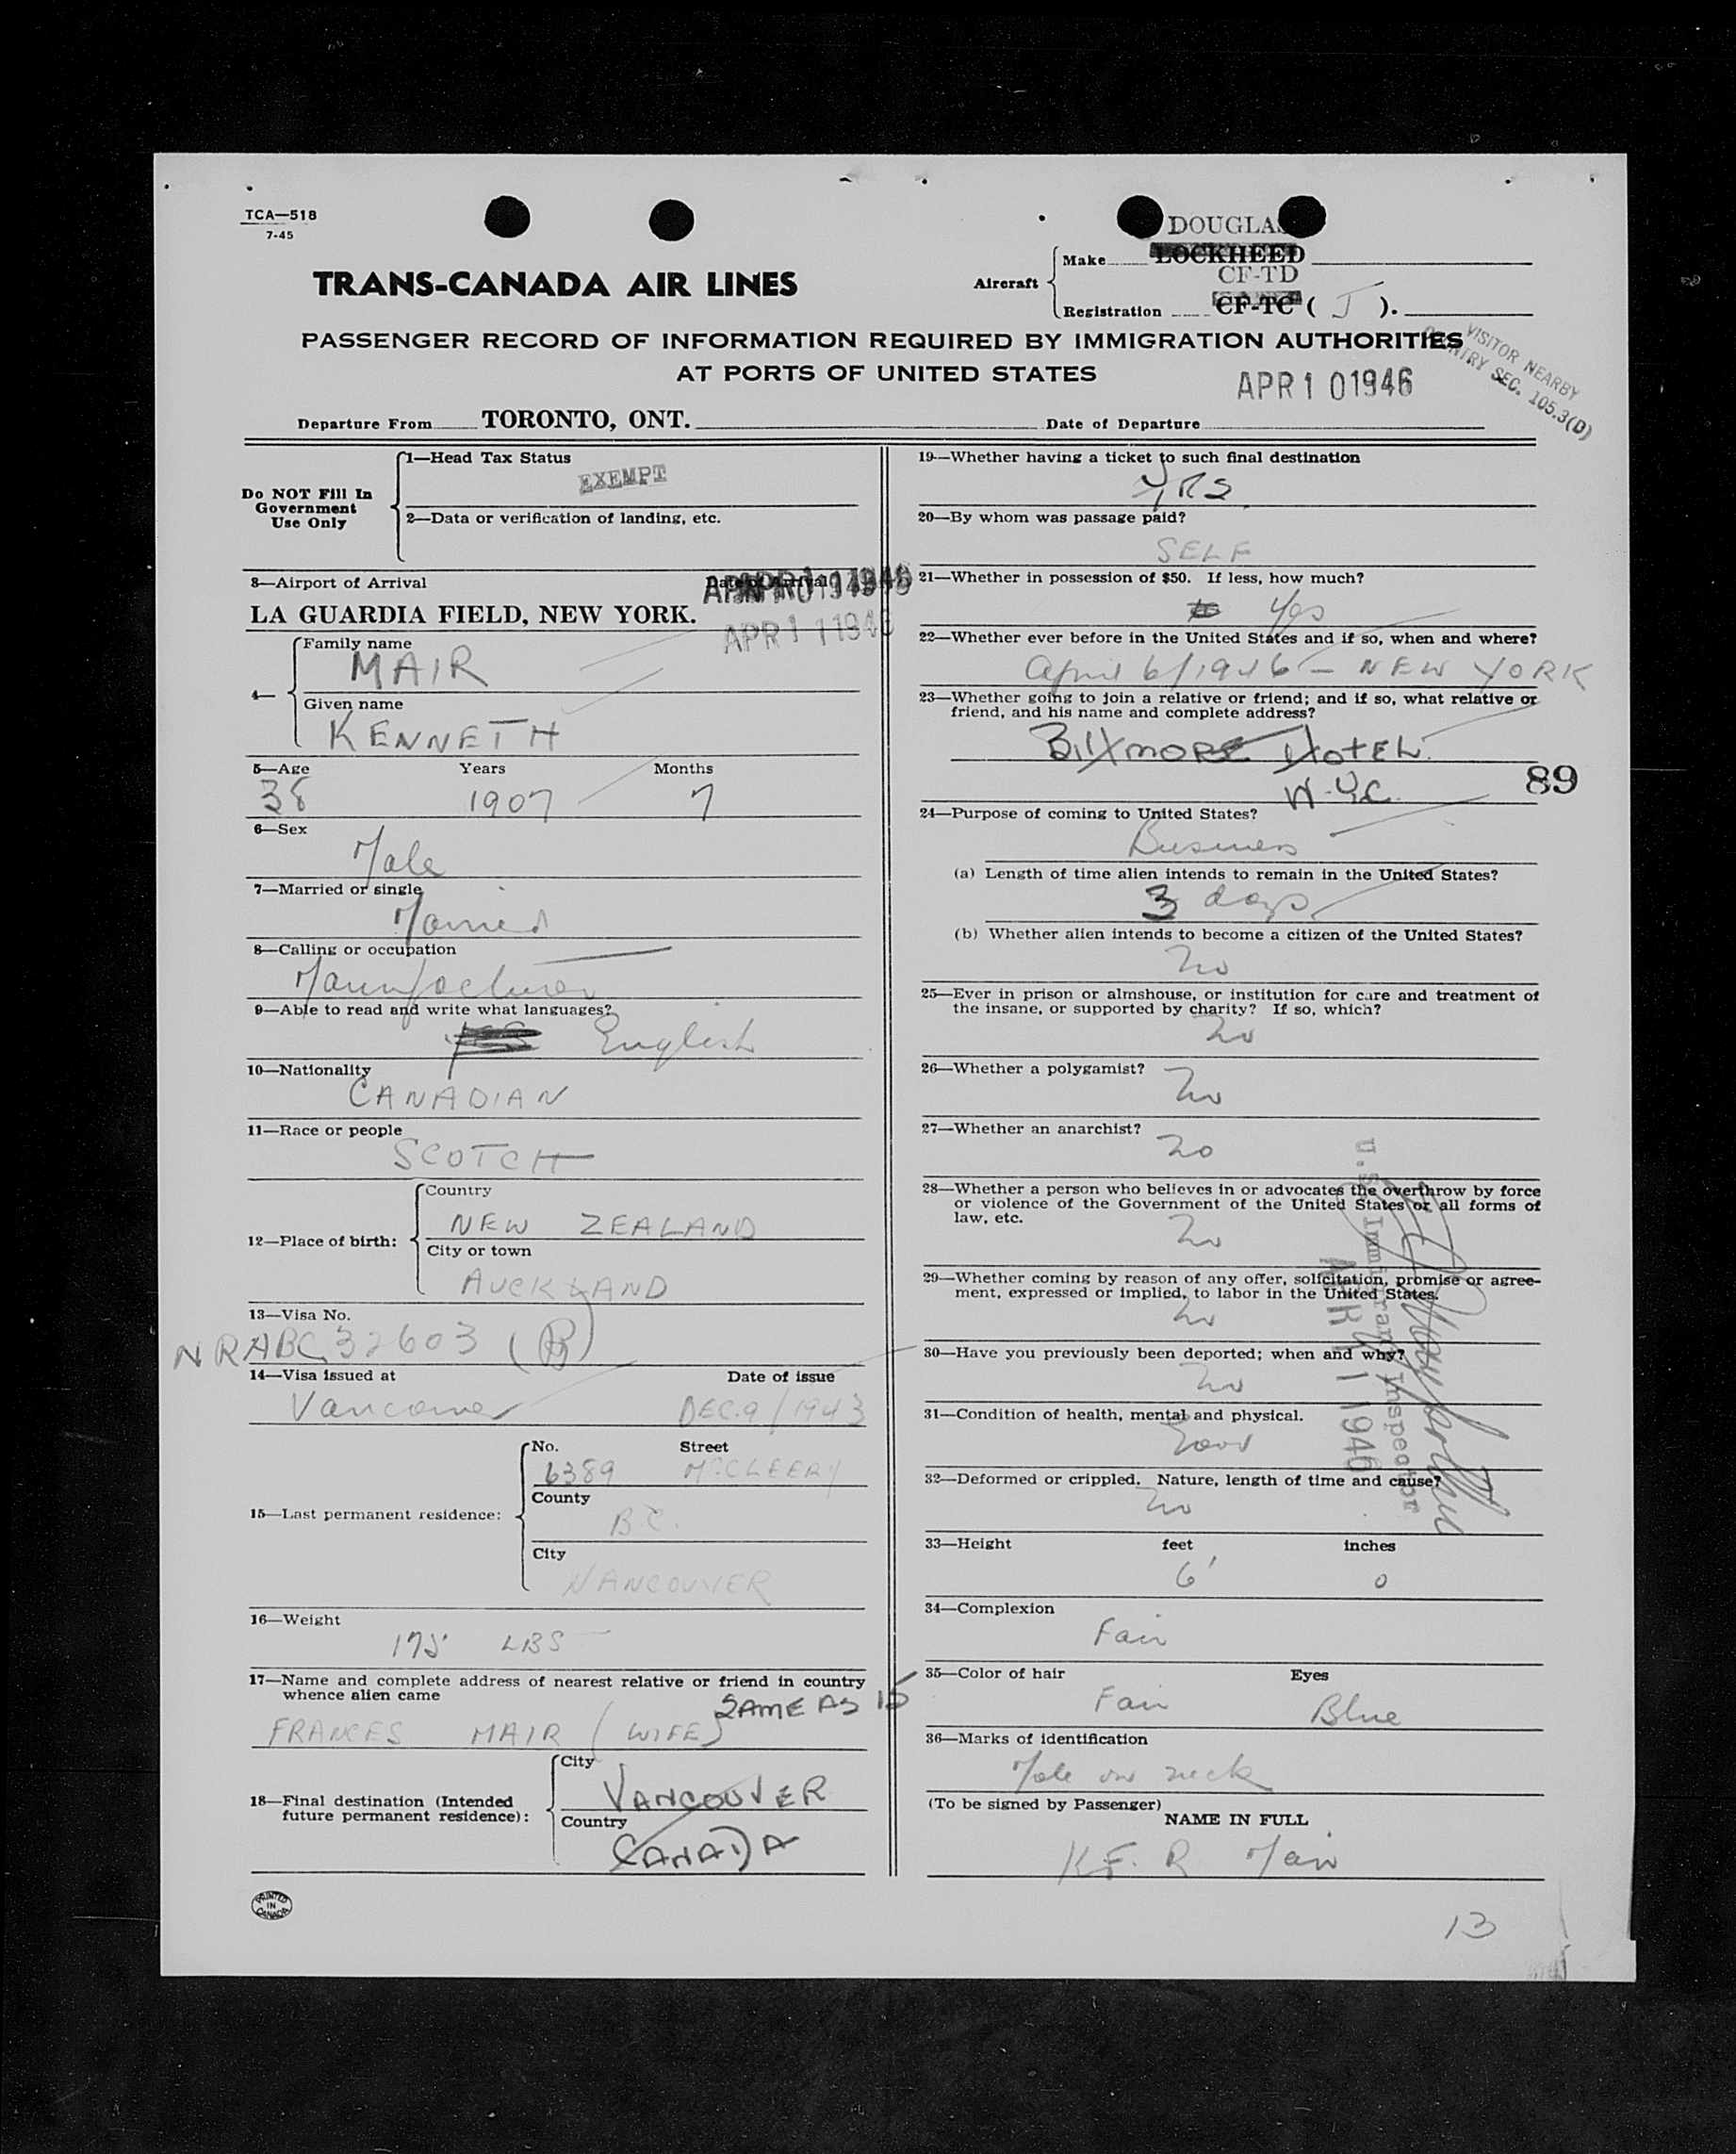 TCA—518
7-45
DOUGLAS
Make LOCKHEED
CF-TD
Aircraft
Registration CF-TC ( J ).
TRANS-CANADA AIR LINES
PASSENGER RECORD OF INFORMATION REQUIRED BY IMMIGRATION AUTHORITIES
AT PORTS OF UNITED STATES
VISITOR NEARBY
SEC. 105.3(D)
APR 10 1946
Departure From TORONTO, ONT.
Date of Departure
Do NOT Fill In
Government
Use Only
1—Head Tax Status
EXEMPT
2—Data or verification of landing, etc.
3—Airport of Arrival
Date of Arrival
LA GUARDIA FIELD, NEW YORK.
APR 11 1946
4—
Family name
MAIR
Given name
KENNETH
5—Age Years Months
38 1907 7
6—Sex
Male
7—Married or single
Married
8—Calling or occupation
Manufacturer
9—Able to read and write what languages?
yes English
10—Nationality
CANADIAN
11—Race or people
SCOTCH
12—Place of birth:
Country
NEW ZEALAND
City or town
AUCKLAND
13—Visa No.
NRABC 32603 (B)
14—Visa issued at Date of issue
Vancouver DEC. 9/1943
15—Last permanent residence:
No. Street
6389 McCLEERY
County
B.C.
City
VANCOUVER
16—Weight
175 LBS
17—Name and complete address of nearest relative or friend in country
whence alien came
SAME AS 15
FRANCES MAIR (WIFE)
18—Final destination (Intended
future permanent residence):
City
VANCOUVER
Country
CANADA
PRINTED
IN
CANADA
19—Whether having a ticket to such final destination
YES
20—By whom was passage paid?
SELF
21—Whether in possession of $50. If less, how much?
Yes
22—Whether ever before in the United States and if so, when and where?
April 6/1946 – NEW YORK
23—Whether going to join a relative or friend; and if so, what relative or
friend, and his name and complete address?
BILTMORE HOTEL
89
N.Y.C.
24—Purpose of coming to United States?
Business
(a) Length of time alien intends to remain in the United States?
3 days
(b) Whether alien intends to become a citizen of the United States?
No
25—Ever in prison or almshouse, or institution for care and treatment of
the insane, or supported by charity? If so, which?
No
26—Whether a polygamist?
No
27—Whether an anarchist?
No
28—Whether a person who believes in or advocates the overthrow by force
or violence of the Government of the United States or all forms of
law, etc.
No
29—Whether coming by reason of any offer, solicitation, promise or agree-
ment, expressed or implied, to labor in the United States.
No
30—Have you previously been deported; when and why?
No
31—Condition of health, mental and physical.
Good
32—Deformed or crippled. Nature, length of time and cause?
No
U.S. Immigrant Inspector
APR 11 1946
33—Height feet inches
6' 0
34—Complexion
Fair
35—Color of hair Eyes
Fair Blue
36—Marks of identification
Mole on neck
(To be signed by Passenger)
NAME IN FULL
K.F. R Mair
13